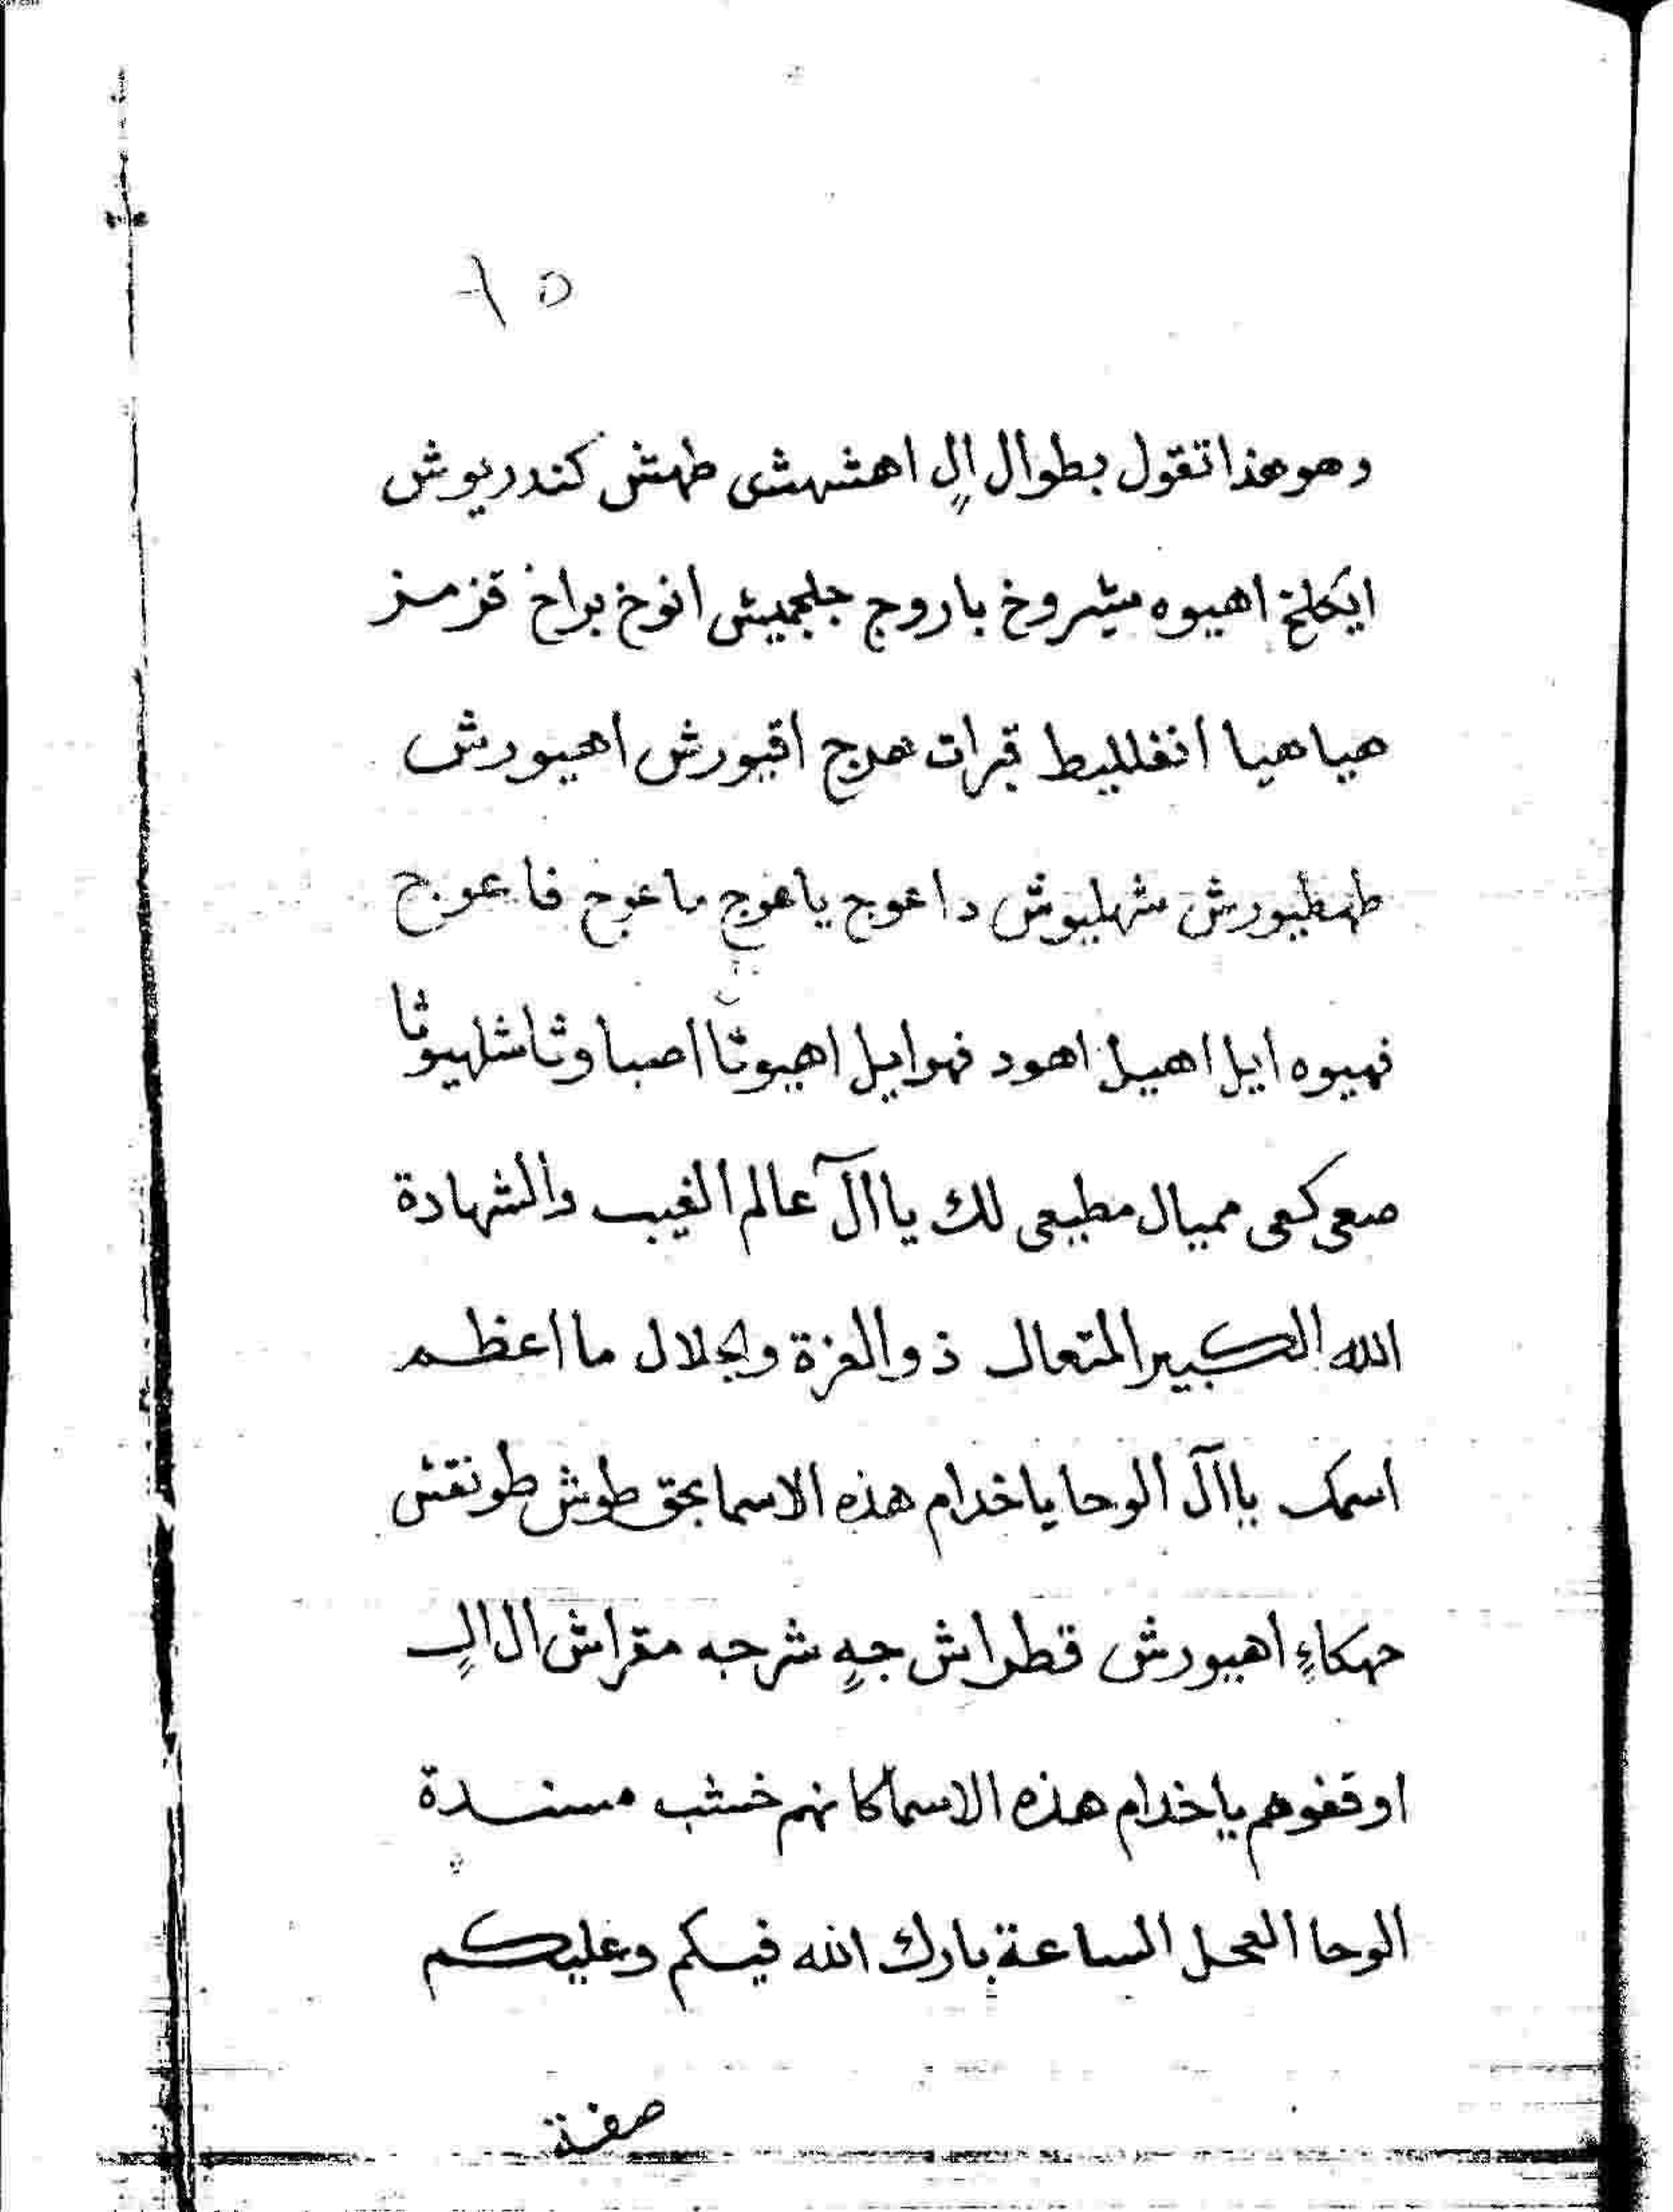 وهو هذا تقول بطوال ال اهشهشى طهش كندريوش
ايكلخ اهيوه ميشروخ باروج جلجميش انوخ براخ قزمز
هيا هيا انغلليط قبرات هدج اقبورش اهيورش
طهطيورش شهليوش داعوج ياعوج ماعوج فاعوج
فهيوه ايل اهيل اهود فهوايل اهيوثا اصباوثا شلهيوثا
صعى كعى مميال مطيعى لك ياآل عالم الغيب والشهادة
الله الكبير المتعال ذو العزة والجلال ما اعظم
اسمك ياآل الوحا ياخدام هذه الاسما بحق طوش طونقش
حهكاءٍ اهيورش قطراش جهٍ شرجه مقراش ال الٍ
اوقفوهم ياخدام هذه الاسما كانهم خشب مسندة
الوحا العجل الساعة بارك الله فيكم وعليكم
صفة